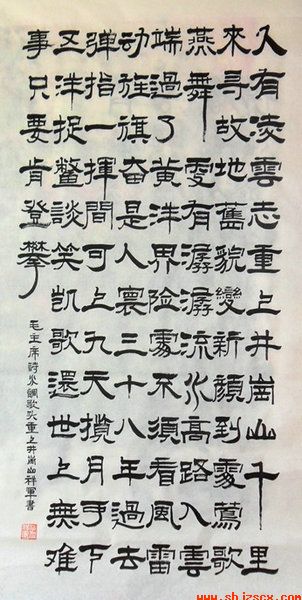 久有凌雲志重上井崗山千里
來尋故地舊貌變新顏到處鶯歌
燕舞更有潺潺流水高路入雲
端過了黃洋界险處不須看風雷
动旌旗奋是人寰三十八年過去
弹指一揮間可上九天攬月可下
五洋捉鱉談笑凯歌還世上無难
事只要肯登攀
毛主席詩水調歌头重上井崗山祥軍書
www.shjzscx.com